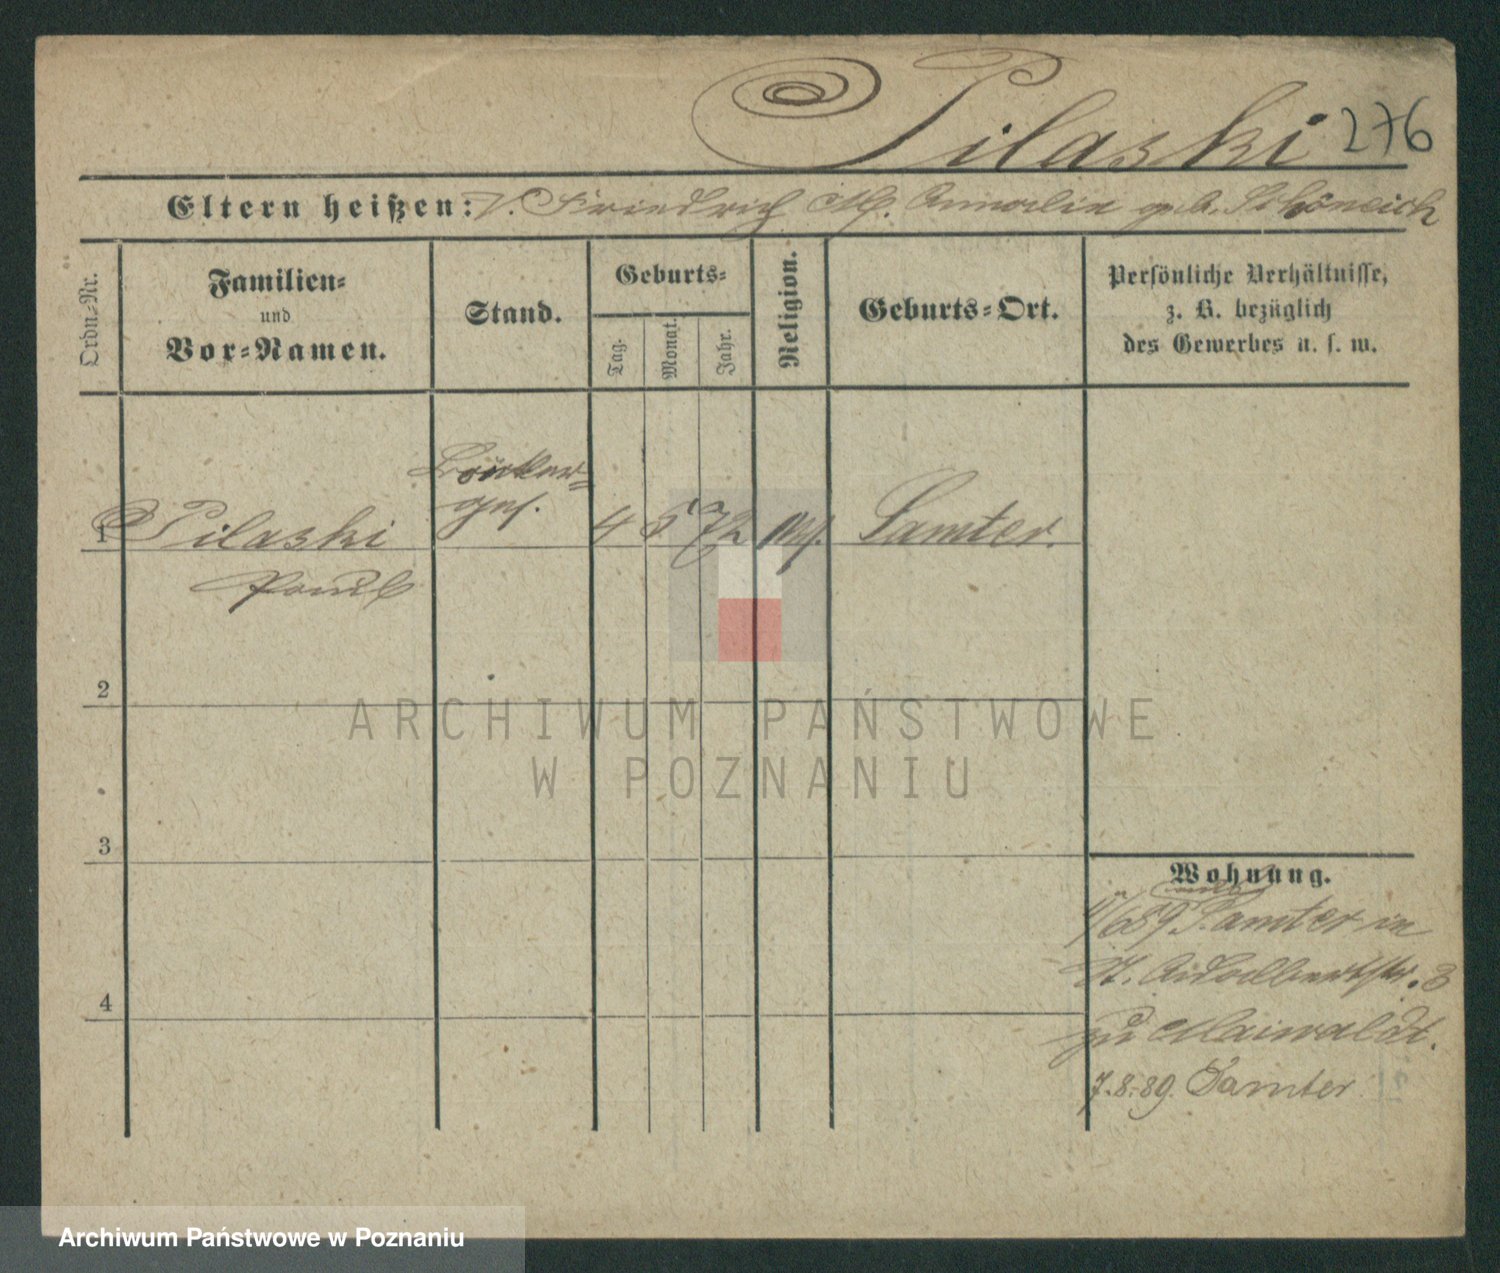 Pilaski 276
Eltern heißen: V. Friedrich M. Amalia geb. Schöneich
Ordn.-Nr.
Familien-
und
Vor-Namen.
Stand.
Geburts-
Tag.
Monat.
Jahr.
Religion.
Geburts-Ort.
Persönliche Verhältnisse,
z. B. bezüglich
des Gewerbes u. s. w.
1 Pilaski
ges. 4 5 72 Samter.
Paul
2
3
4
ARCHIWUM PAŃSTWOWE
W POZNANIU
Wohnung.
11/6 89 Samter in
St. Adalbertstr. 3
zu Maiwaldt.
7.8.89. Samter
Archiwum Państwowe w Poznaniu